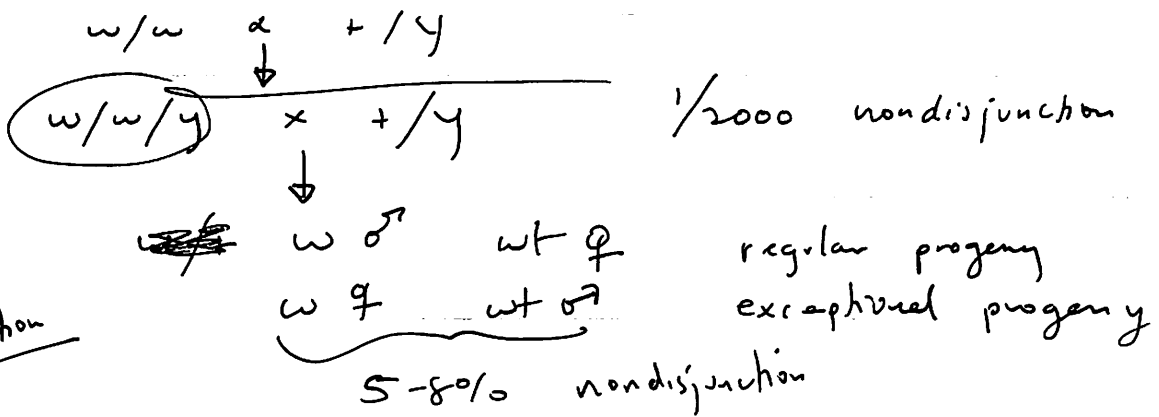 w/w x + / y
w/w/y x + / y 1/2000 nondisjunction
w ♂ wt ♀ regular progeny
w ♀ wt ♂ exceptional progeny
5-8% nondisjunction